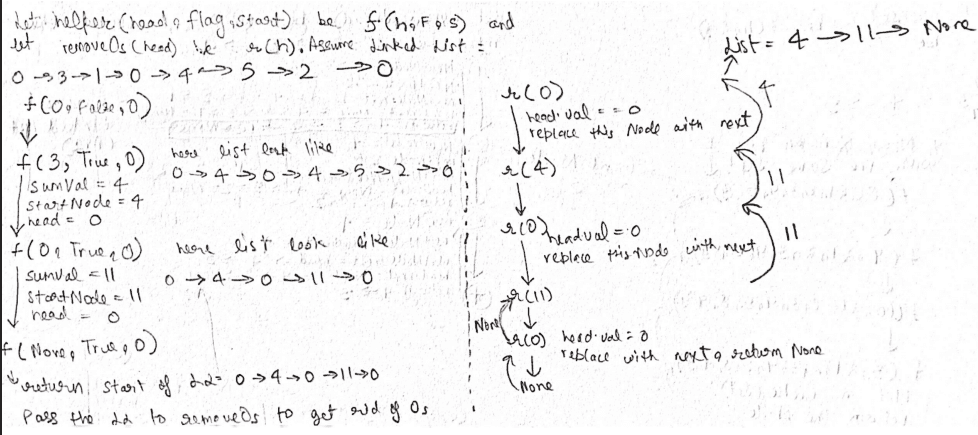 Let helper(head, flag, start) be f(h, F, s) and
let remove0s(head) be r(h). Assume Linked List =
0 → 3 → 1 → 0 → 4 → 5 → 2 → 0
f(0, False, 0)
f(3, True, 0)
sumVal = 4
startNode = 4
head = 0
here list look like
0 → 4 → 0 → 4 → 5 → 2 → 0
f(0, True, 0)
sumval = 11
startNode = 11
head = 0
here list look like
0 → 4 → 0 → 11 → 0
f(None, True, 0)
return start of LL = 0 → 4 → 0 → 11 → 0
Pass the LL to remove0s to get rid of 0s
List = 4 → 11 → None
r(0)
head.val == 0
replace this Node with next
4
r(4)
11
r(0)
headval = 0
replace this node with next
11
r(11)
None
r(0)
head.val = 0
replace with next, return None
None